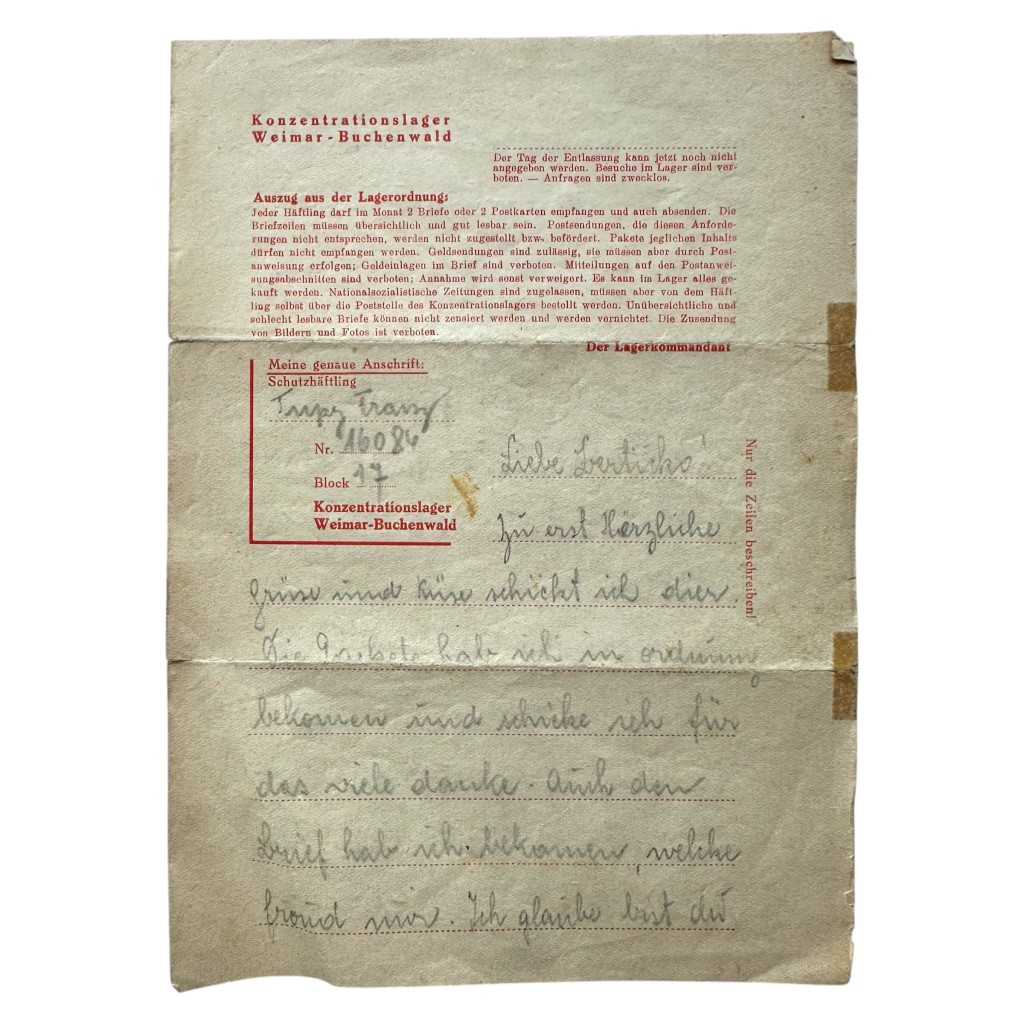 Konzentrationslager
Weimar-Buchenwald
Der Tag der Entlassung kann jetzt noch nicht
angegeben werden. Besuche im Lager sind ver-
boten. — Anfragen sind zwecklos.
Auszug aus der Lagerordnung:
Jeder Häftling darf im Monat 2 Briefe oder 2 Postkarten empfangen und auch absenden. Die
Briefzeilen müssen übersichtlich und gut lesbar sein. Postsendungen, die diesen Anforde-
rungen nicht entsprechen, werden nicht zugestellt bzw. befördert. Pakete jeglichen Inhalts
dürfen nicht empfangen werden. Geldsendungen sind zulässig, sie müssen aber durch Post-
anweisung erfolgen; Geldeinlagen im Brief sind verboten. Mitteilungen auf den Postanwei-
sungsabschnitten sind verboten; Annahme wird sonst verweigert. Es kann im Lager alles ge-
kauft werden. Nationalsozialistische Zeitungen sind zugelassen, müssen aber von dem Häft-
ling selbst über die Poststelle des Konzentrationslagers bestellt werden. Unübersichtliche und
schlecht lesbare Briefe können nicht zensiert werden und werden vernichtet. Die Zusendung
von Bildern und Fotos ist verboten.
Der Lagerkommandant
Meine genaue Anschrift:
Schutzhäftling
Franz
Nr. 16084
Block 17
Konzentrationslager
Weimar-Buchenwald
Nur die Zeilen beschreiben!
Liebe
Zu erst Herzliche
grüse und Küse schickt ich dier.
Die hab ich in ordnung
bekomen und schicke ich für
das viele danke. Auch den
Brief hab ich bekomen, welche
froud mir. Ich glaube bist du